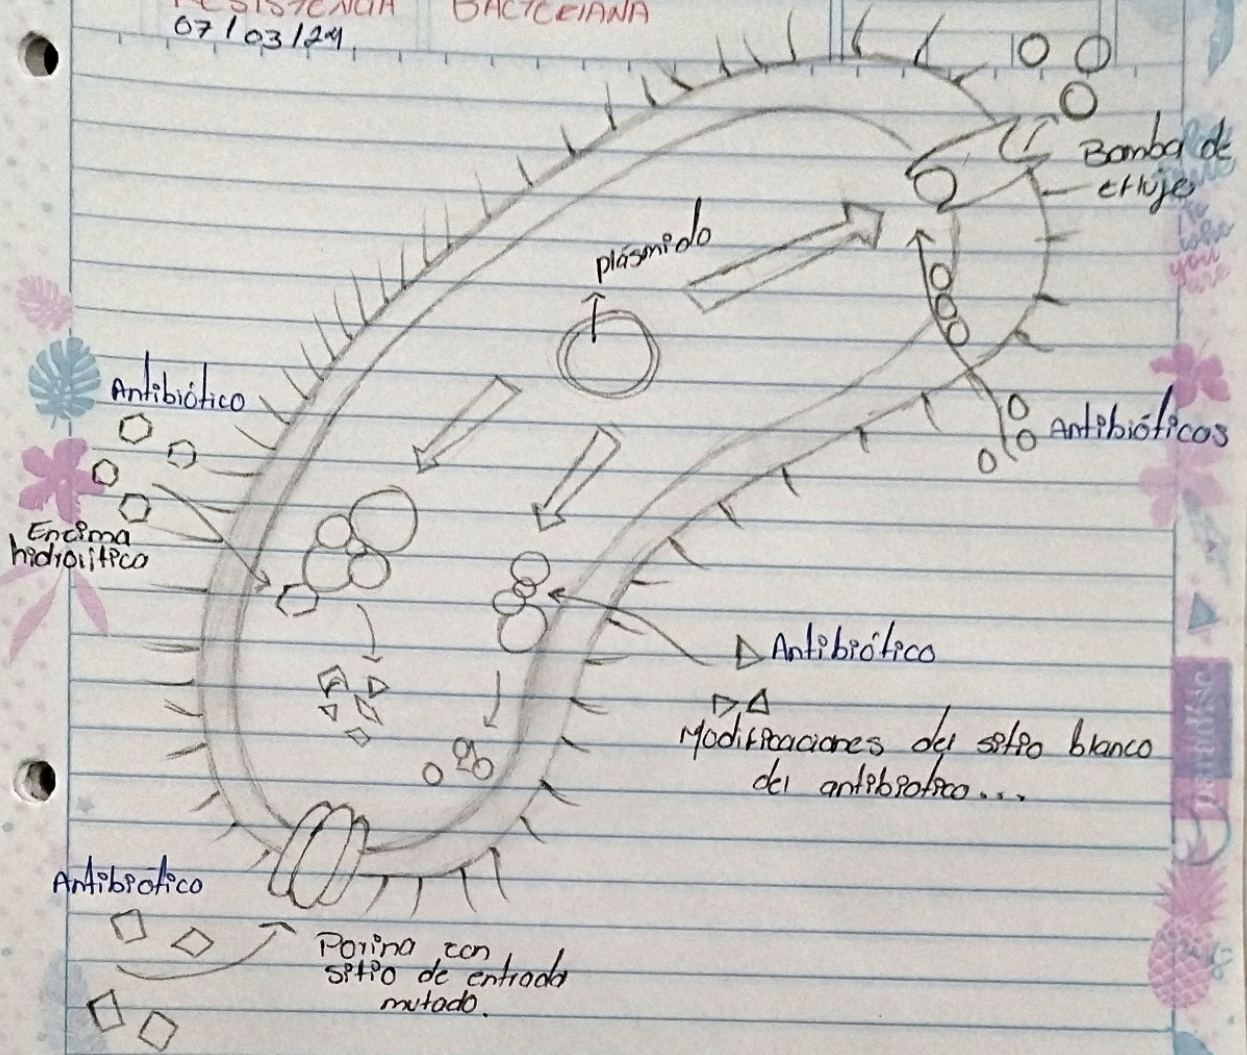 RESISTENCIA BACTERIANA
07/03/24
Bomba de
eflujo
plásmido
Antibiótico
Antibióticos
Encima
hidrolitico
Antibiótico
Modificaciones del sitio blanco
del antibiotico...
Antibiótico
Porina con
sitio de entrada
mutado.